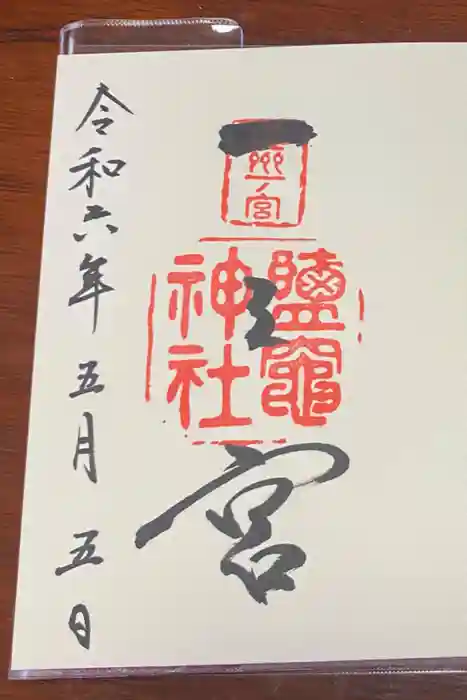 州一宮
一之宮
鹽竈
神社
令和六年五月五日